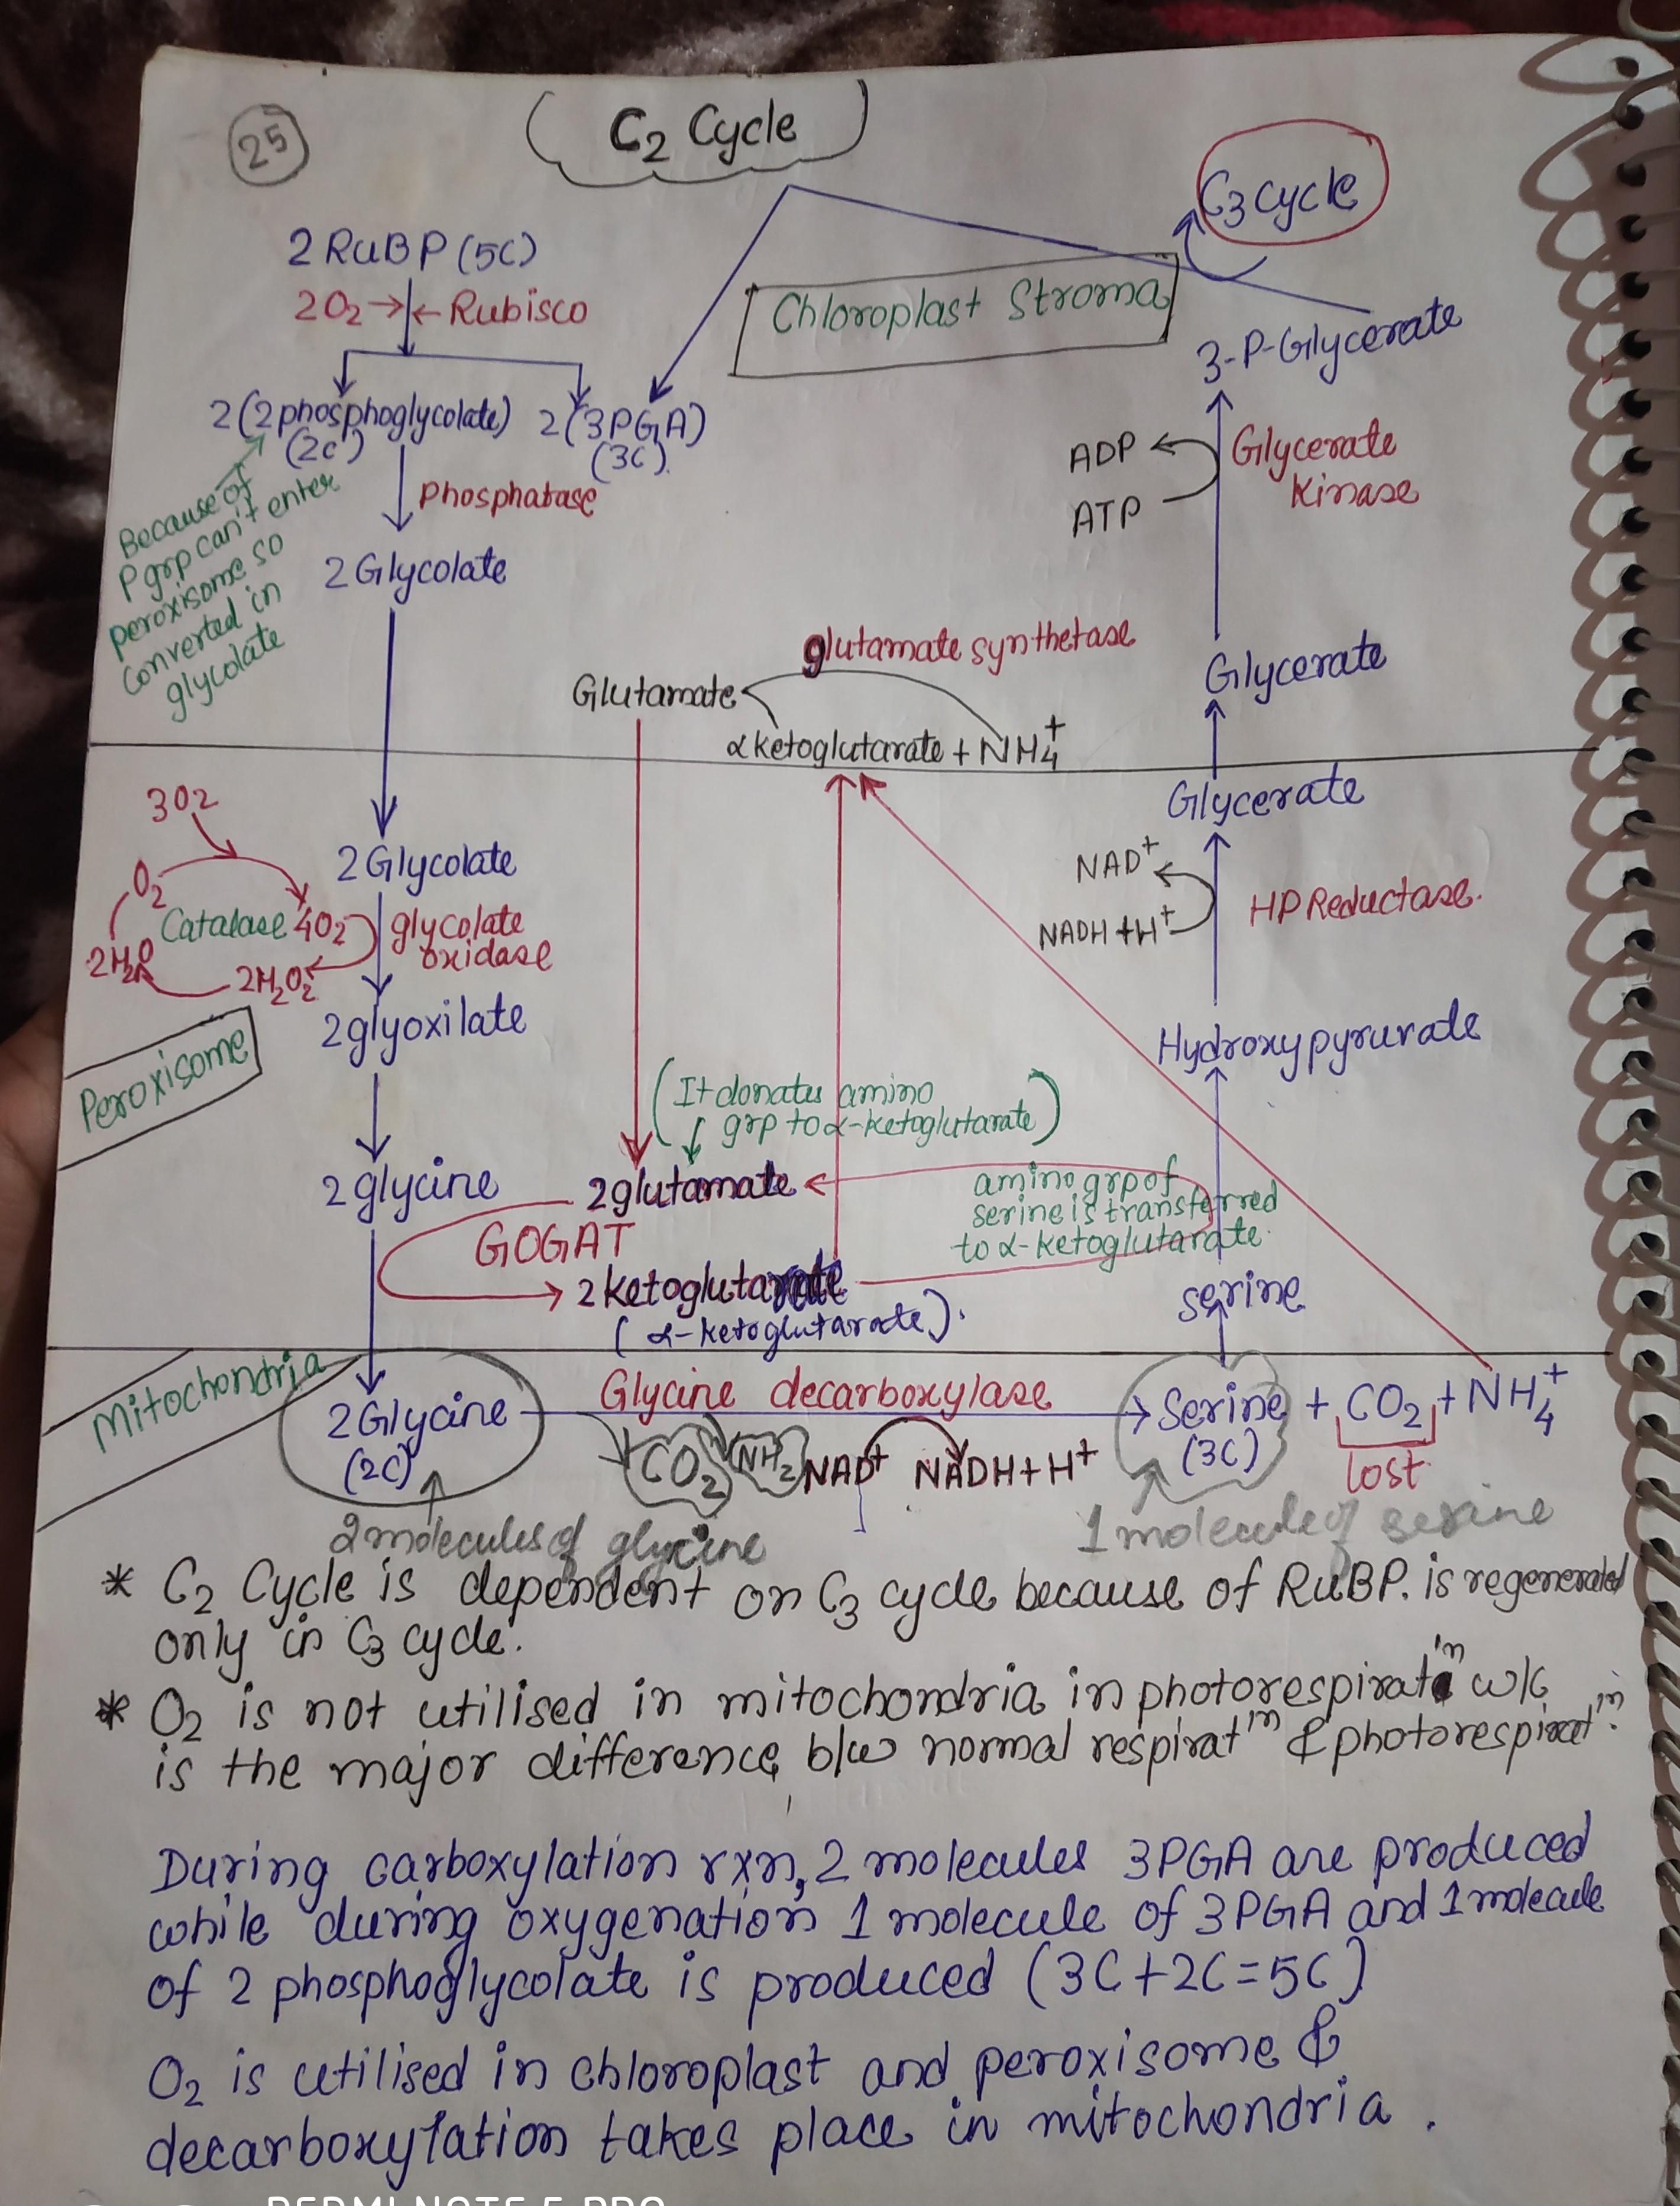 25
C2 Cycle
C3 cycle
2 RuBP (5C)
2O2 → ← Rubisco
Chloroplast Stroma
3-P-Glycerate
2(2phosphoglycolate) 2(3PGA)
(2C) (3C).
Phosphatase
Because of
P grp can't enter
peroxisome so
converted in
glycolate
ADP
ATP
Glycerate
Kinase
2 Glycolate
glutamate synthetase
Glutamate
αketoglutarate + NH4+
Glycerate
Glycerate
3O2
O2
Catalase 4O2
2H2O
2H2O2
2 Glycolate
glycolate
oxidase
NAD+
NADH + H+
HP Reductase.
2glyoxilate
Hydroxypyruvate
Peroxisome
(It donates amino
grp to α-ketoglutarate)
2 glycine
2glutamate
amino grp of
serine is transferred
to α-ketoglutarate.
GOGAT
2 ketoglutarate
(α-ketoglutarate).
serine
Mitochondria
2 Glycine
(2C)
Glycine decarboxylase
CO2 NH2 NAD+ NADH + H+
Serine + CO2 + NH4+
(3C) lost
2 molecules of glycine
1 molecule of serine
* C2 Cycle is dependent on C3 cycle because of RuBP. is regenerated
only in C3 cycle.
* O2 is not utilised in mitochondria in photorespirat'n w/c
is the major difference b/w normal respirat'n & photorespirat'n.
During carboxylation rxn, 2 molecules 3PGA are produced
while during oxygenation 1 molecule of 3PGA and 1 molecule
of 2 phosphoglycolate is produced (3C+2C=5C)
O2 is utilised in chloroplast and peroxisome &
decarboxylation takes place in mitochondria.
REDMI NOTE 5 PRO